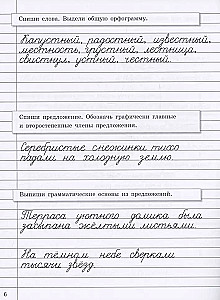 Спиши слова. Выдели общую орфограмму.
Капустный, радостный, известный,
местность, грустный, лестница,
свистнул, устный, честный.
Спиши предложение. Обозначь графически главные
и второстепенные члены предложения.
Серебристые снежинки тихо
падали на холодную землю.
Выпиши грамматические основы из предложений.
Терраса уютного домика была
засыпана жёлтыми листьями.
На тёмном небе сверкали
тысячи звёзд.
6